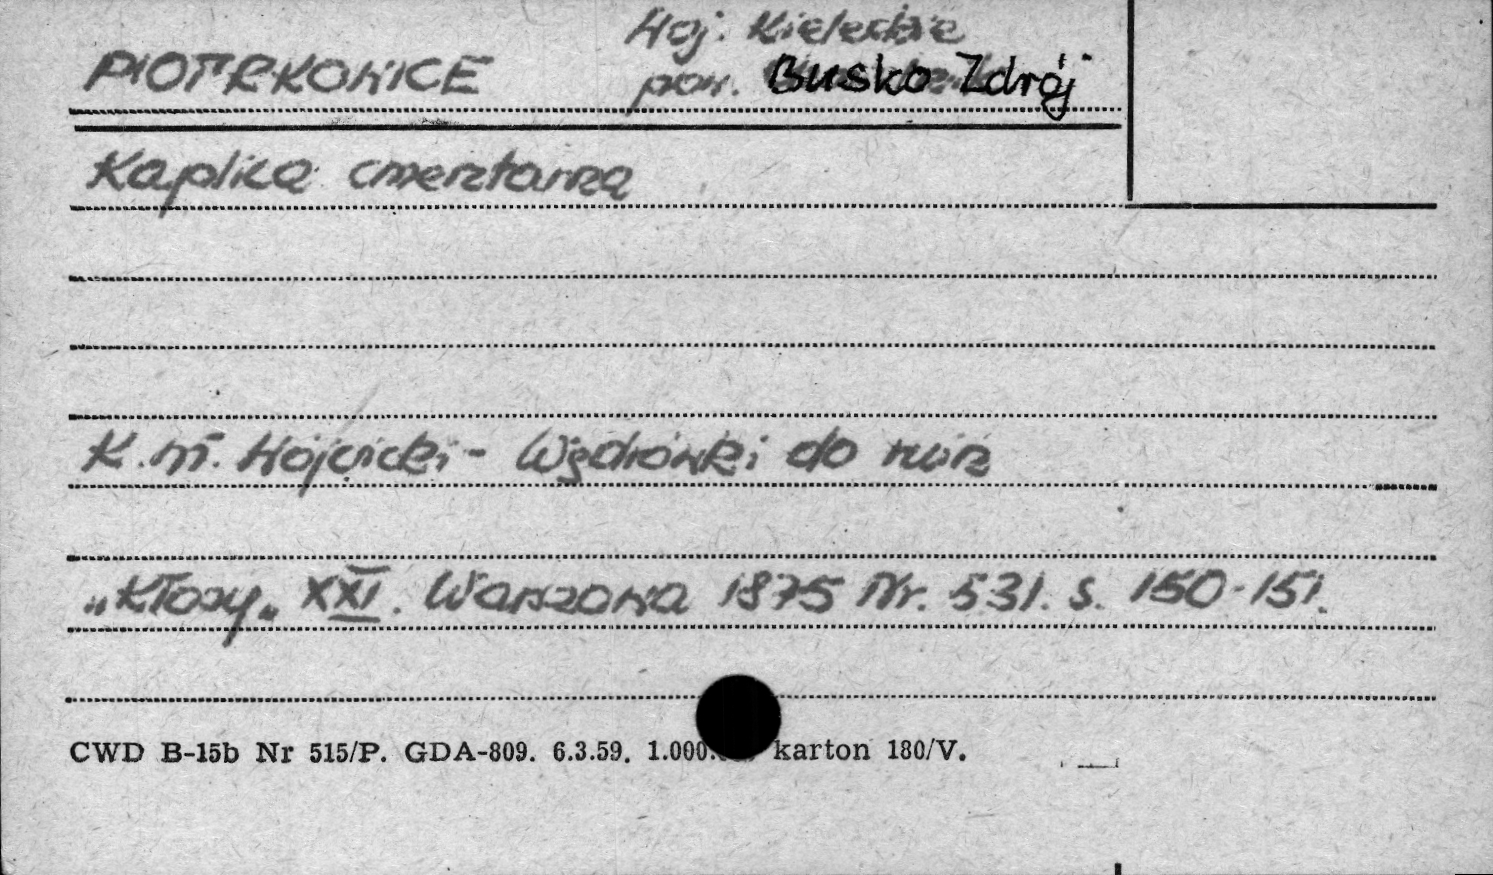 Woj. Kieleckie
PIOTRKOWICE pow. Busko Zdrój
Kaplica cmentarna
K. Wł. Wójcicki - Wędrówki do ruin
„Kłosy„ XXI. Warszawa 1875 Nr. 531. s. 150-151.
CWD B-15b Nr 515/P. GDA-809. 6.3.59. 1.000. karton 180/V.